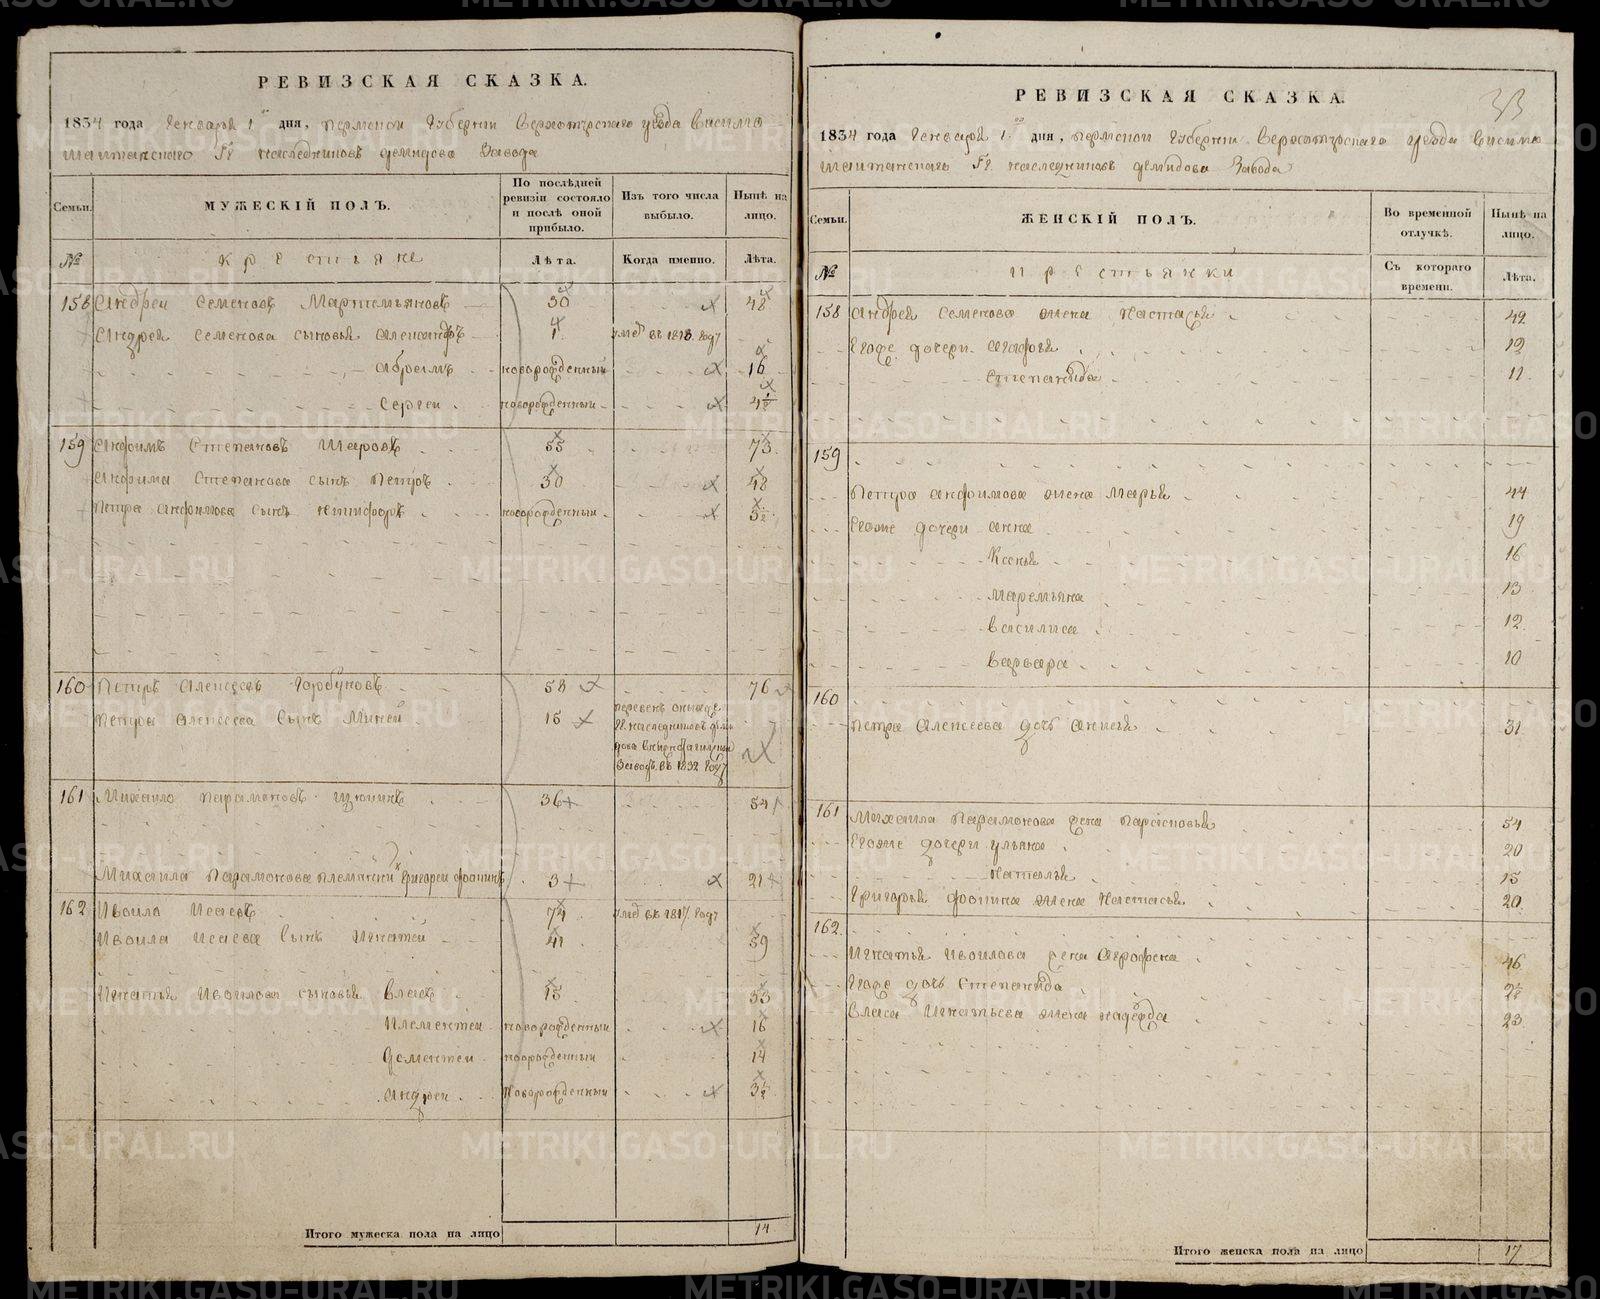 РЕВИЗСКАЯ СКАЗКА.
1834 года Генваря 1го дня, Пермской Губернии Верхотурского уезда Висимо
шайтанского Гг. наследниковъ Демидова Завода
Семьи.
МУЖЕСКІЙ ПОЛЪ.
По послѣдней ревизіи состояло и послѣ оной прибыло.
Изъ того числа выбыло.
Нынѣ на лицо.
№
Крестьяне
Лѣта.
Когда именно.
Лѣта.
158 Андрей Семеновъ Мартемьяновъ 30 48
Андрея Семенова сыновья Александръ 1 умер въ 1818 году
Абрамъ новорожденный 16
Сергей новорожденный 4½
159 Анфимъ Степановъ Шаровъ 55 73
Анфима Степанова сынъ Петръ 30 48
Петра Анфимова сынъ Никифоръ новорожденный 3½
160 Петръ Алексеевъ Горбуновъ 58 76
Петра Алексеева сынъ Миней 15 переведенъ оныхже
Гг. наследниковъ Деми
дова въ Нижнетагильской
Заводъ въ 1832 году
161 Михайло Парамоновъ 36 54
Михаила Парамонова племянникъ Григорей Фотинъ 3 21
162 Ивойло Исаевъ 74 умер въ 1817 году
Ивойла Исаева сынъ Игнатей 41 59
Игнатья Ивойлова сыновья Власъ 15 33
Клементей новорожденный 16
Дементей новорожденный 14
Андрей новорожденный 3½
Итого мужеска пола на лицо 14
33
РЕВИЗСКАЯ СКАЗКА.
1834 года Генваря 1го дня, Пермской Губернии Верхотурского уезда Висимо
шайтанскаго Гг. наследниковъ Демидова Завода
Семьи.
ЖЕНСКІЙ ПОЛЪ.
Во временной отлучкѣ.
Нынѣ на лицо.
№
Крестьянки
Съ котораго времени.
Лѣта.
158 Андрея Семенова жена Настасья 49
Егоже дочери Агафья 19
Степанида 11
159
Петра Анфимова жена Марья 44
Егоже дочери Анна 19
Ксенья 16
Маремьяна 13
Василиса 12
Варвара 10
160
Петра Алексеева дочь Анисья 31
161 Михаила Парамонова жена Парасковья 54
Егоже дочери Ульяна 20
Наталья 15
Григорья Фотина жена Настасья 20
162.
Игнатья Ивойлова жена Аграфена 46
Егоже дочь Степанида 2½
Власа Игнатьева жена Надежда 23
Итого женска пола на лицо 17
METRIKI.GASO-URAL.RU